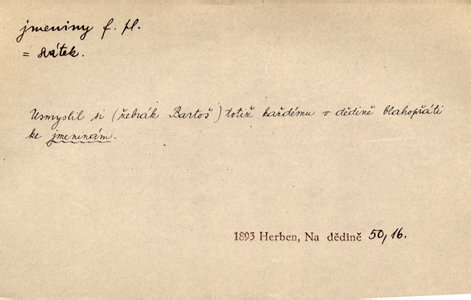 jmeniny f. pl.
= svátek.
Usmyslil si (žebrák Bartoš) totiž každému v dědině blahopřáti
ke jmeninám.
1893 Herben, Na dědině 50, 16.